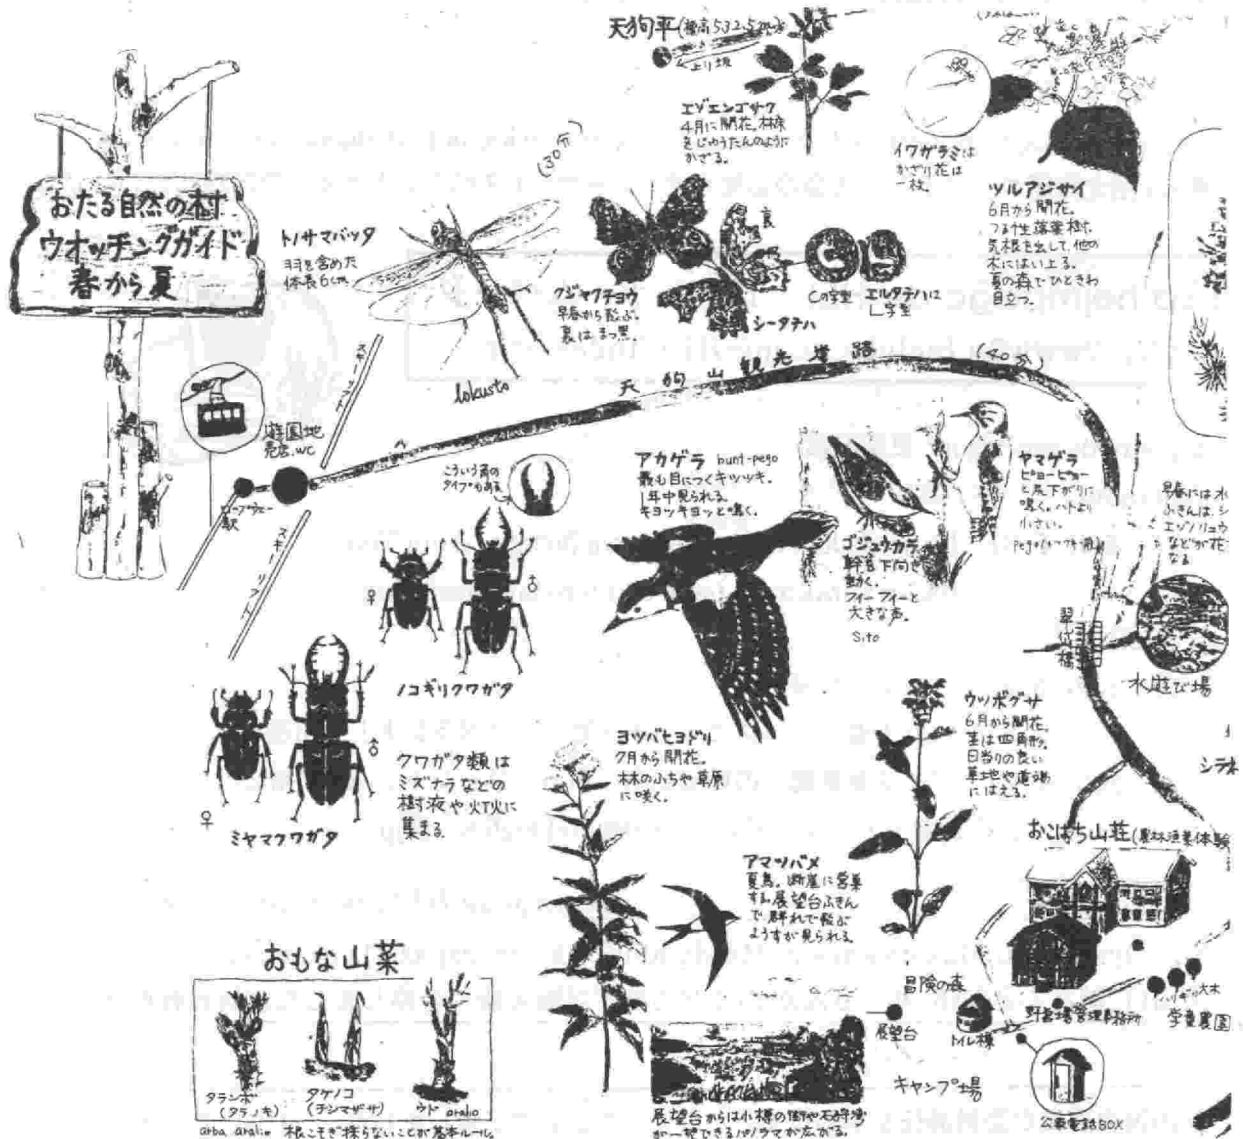 おたる自然の村
ウオッチングガイド
春から夏
天狗平(標高532.5m)
上り坂
(30分)
エゾエンゴサク
4月に開花。林床
をじゅうたんのように
かざる。
イワガラミは
かざり花は
一枚。
ツルアジサイ
6月から開花。
つる性落葉樹。
気根を出して、他の
木にはい上る。
夏の森でひときわ
目立つ。
トノサマバッタ
羽を含めた
体長6cm
lokusto
クジャクチョウ
早春から飛ぶ。
裏はまっ黒。
裏
シータテハ
Cの字型
エルタテハは
L字型
天狗山観光道路
(40分)
スキーリフト
遊園地
売店.WC
ロープウェー
駅
スキーリフト
こういう角の
タイプもある
♀
♂
ノコギリクワガタ
♀
♂
ミヤマクワガタ
クワガタ類は
ミズナラなどの
樹液や灯火に
集まる
アカゲラ bunt-pego
最も目につくキツツキ。
1年中見られる。
キョッキョッと鳴く。
ゴジュウカラ
幹を下向き
動く。
フィーフィーと
大きな声。
Sito
ヤマゲラ
ピョーピョー
と尻下がりに
鳴く。ハトより
小さい。
早春には水
ふきんは、シ
エゾノリュウ
などが花
なる
翠岱橋
水遊び場
ヨツバヒヨドリ
7月から開花。
林のふちや草原
に咲く。
ウツボグサ
6月から開花。
茎は四角形。
日当りの良い
草地や道端
にはえる。
アマツバメ
夏鳥。断崖に営巣
する。展望台ふきん
で群れで飛ぶ
ようすが見られる。
シラ
おこばち山荘(農林漁業体験
冒険の森
展望台
トイレ棟
野営場管理事務所
ハリギリ大木
学童農園
キャンプ場
公衆電話BOX
展望台からは小樽の街や石狩湾
が一望できるパノラマが広がる。
おもな山菜
タランボ
(タラノキ)
タケノコ
(チシマザサ)
ウド aralio
arba aralio 根こそぎ採らないことが基本ルール。